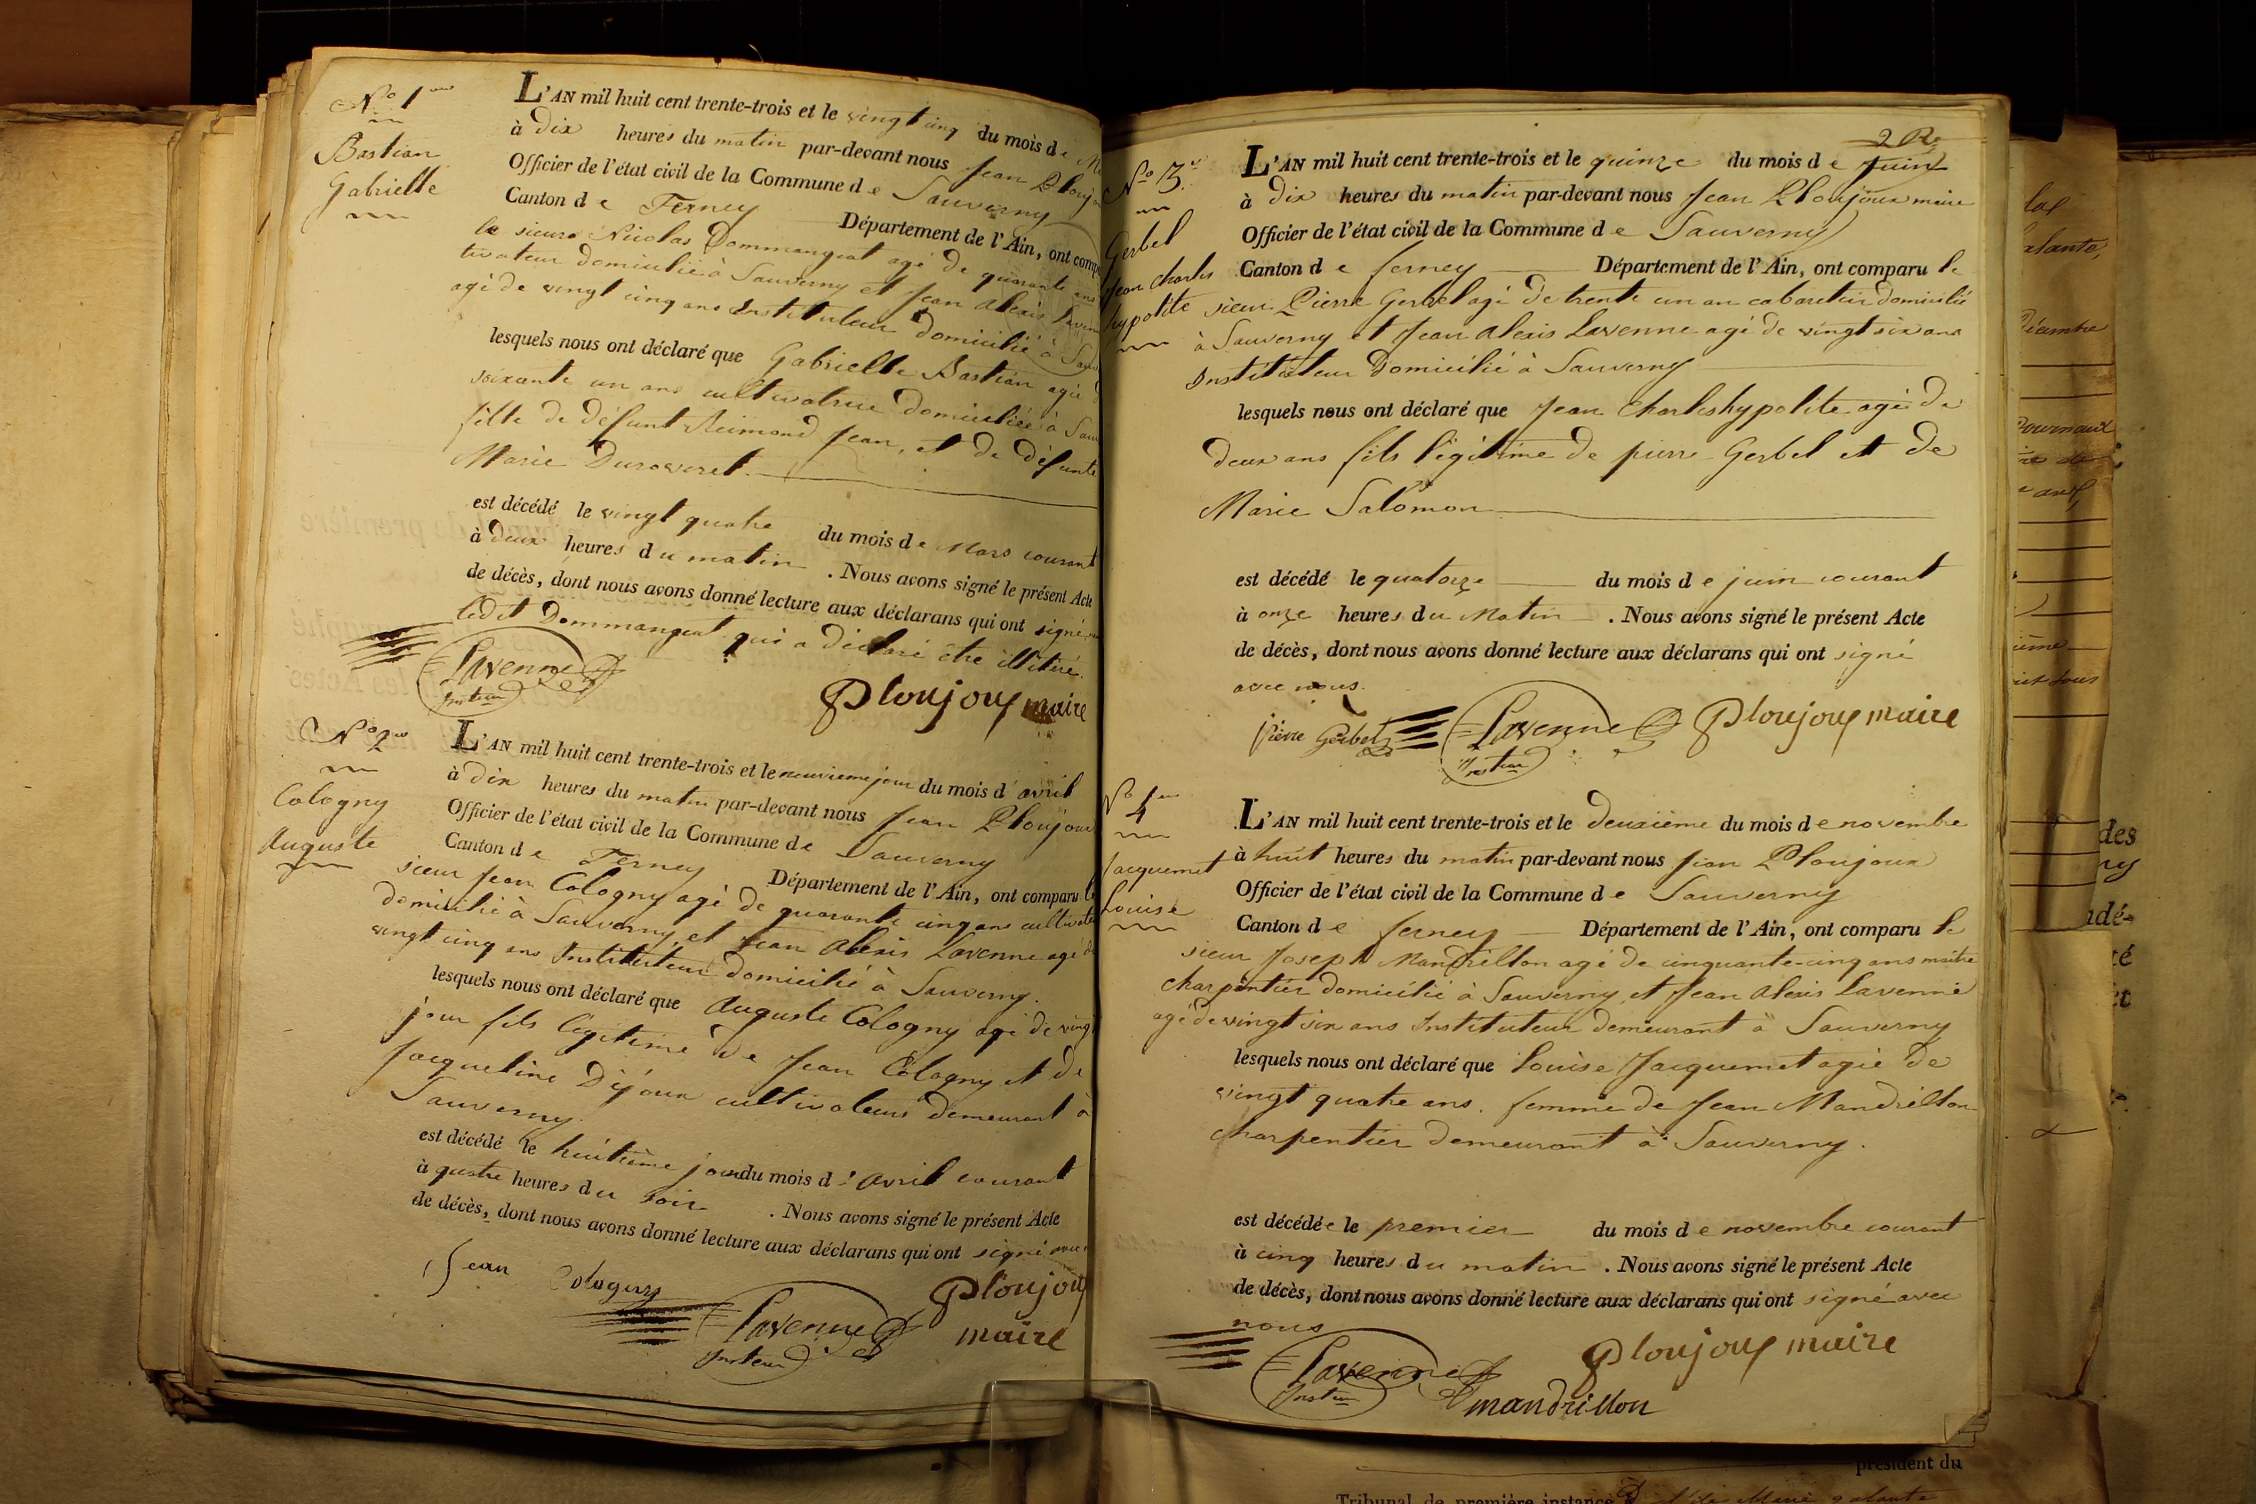 No 1er
Bastian
Gabrielle
L'AN mil huit cent trente-trois et le vingt cinq du mois de
à dix heures du matin par-devant nous Jean
Officier de l'état civil de la Commune de Sauverny
Canton de Ferney Département de l'Ain, ont
le sieurs Nicolas Dommangeat agé de quarante ans
tivateur domicilié à Sauverny et Jean Alexis
agé de vingt cinq ans Instituteur domicilié à
lesquels nous ont déclaré que Gabrielle Bastian agée
soixante un ans cultivatrice domiciliée à
fille de défunt Reimond Jean, et de défunte
Marie Duroveret
est décédé le vingt quatre du mois de Mars courant
à deux heures du matin . Nous avons signé le présent Acte
de décès, dont nous avons donné lecture aux déclarans qui ont signé
ledit Dommangeat qui a déclaré être illitiré.
Lavenne
Ploujoux maire
No 2
Cologny
Auguste
L'AN mil huit cent trente-trois et le neuvieme jour du mois d'avril
à dix heures du matin par-devant nous Jean Ploujoux
Officier de l'état civil de la Commune de Sauverny
Canton de Ferney Département de l'Ain, ont comparu le
sieur Jean Cologny agé de quarante cinq ans
domicilié à Sauverny et Jean Alexis Lavenne agé de
vingt cinq ans Instituteur domicilié à Sauverny.
lesquels nous ont déclaré que Auguste Cologny agé de vingt
jour fils légitime de Jean Cologny et de
Jacqueline Déjoux cultivateurs demeurant à
Sauverny.
est décédé le huitième jour du mois d'avril courant
à quatre heures du soir . Nous avons signé le présent Acte
de décès, dont nous avons donné lecture aux déclarans qui ont signé avec
Jean Cologny
Lavenne
Ploujoux
maire
No 3
Gerbel
Jean Charles
hypolite
L'AN mil huit cent trente-trois et le quinze du mois de Juin
à dix heures du matin par-devant nous Jean Ploujoux maire
Officier de l'état civil de la Commune de Sauverny
Canton de ferney Département de l'Ain, ont comparu le
sieur Pierre Gerbel agé de trente un an cabaretier domicilié
à Sauverny et Jean Alexis Lavenne agé de vingt six ans
Instituteur Domicilié à Sauverny
lesquels nous ont déclaré que Jean Charles hypolite agé de
deux ans fils légitime de pierre Gerbel et de
Marie Salomon
est décédé le quatorze du mois de juin courant
à onze heures du Matin . Nous avons signé le présent Acte
de décès, dont nous avons donné lecture aux déclarans qui ont signé
avec nous.
pierre Gerbel Lavenne Ploujoux maire
No 4
Jacquemet
Louise
L'AN mil huit cent trente-trois et le deuxième du mois de novembre
à huit heures du matin par-devant nous Jean Ploujoux
Officier de l'état civil de la Commune de Sauverny
Canton de ferney Département de l'Ain, ont comparu le
sieur Joseph Mandrillon agé de cinquante-cinq ans maître
charpentier domicilié à Sauverny et Jean Alexis Lavenne
agé de vingt six ans Instituteur demeurant à Sauverny
lesquels nous ont déclaré que Louise Jacquemet agée de
vingt quatre ans. femme de Jean Mandrillon
charpentier demeurant à Sauverny.
est décédée le premier du mois de novembre courant
à cinq heures du matin . Nous avons signé le présent Acte
de décès, dont nous avons donné lecture aux déclarans qui ont signé avec
nous
Lavenne
Ploujoux maire
mandrillon
président du
Tribunal de première instance